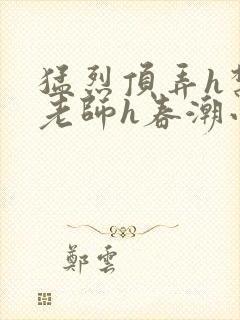 猛烈頂弄h
老師h春潮
鄭雲